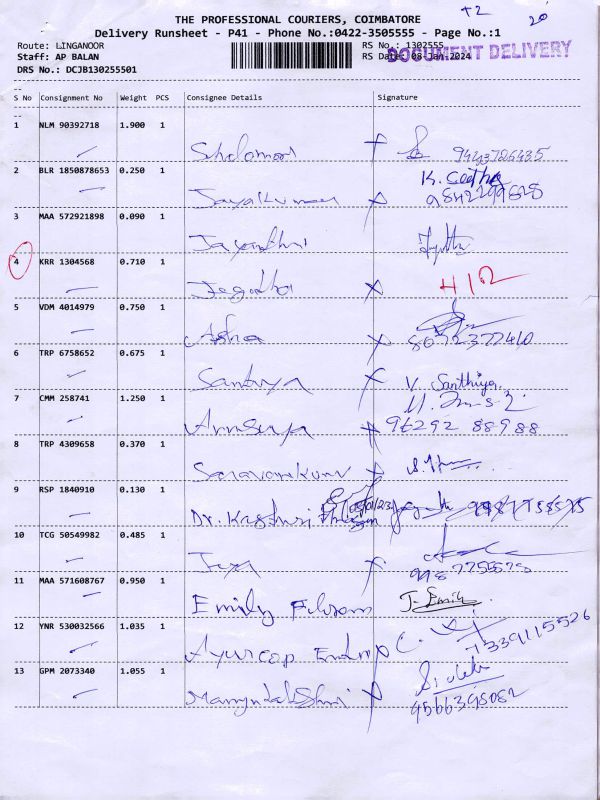 +2 20
THE PROFESSIONAL COURIERS, COIMBATORE
Delivery Runsheet - P41 - Phone No.:0422-3505555 - Page No.:1
Route: LINGANOOR RS No.: 1302555
Staff: AP BALAN RS Date: 08-Jan-2024 DOCUMENT DELIVERY
DRS No.: DCJB130255501
S No Consignment No Weight PCS Consignee Details Signature
1 NLM 90392718 1.900 1
2 BLR 1850878653 0.250 1 K. Geetha
Jayakumar
3 MAA 572921898 0.090 1
Jayanthi
4 KRR 1304568 0.710 1
5 VDM 4014979 0.750 1
Asha 8072377410
6 TRP 6758652 0.675 1
Sandhya V. Santhiya
7 CMM 258741 1.250 1
96292 88988
8 TRP 4309658 0.370 1
Saravanakumar
9 RSP 1840910 0.130 1
Dr. Kasthuri
10 TCG 50549982 0.485 1
Jaya
11 MAA 571608767 0.950 1
Emily J. Emily
12 YNR 530032566 1.035 1
7339115526
13 GPM 2073340 1.055 1
9566395082